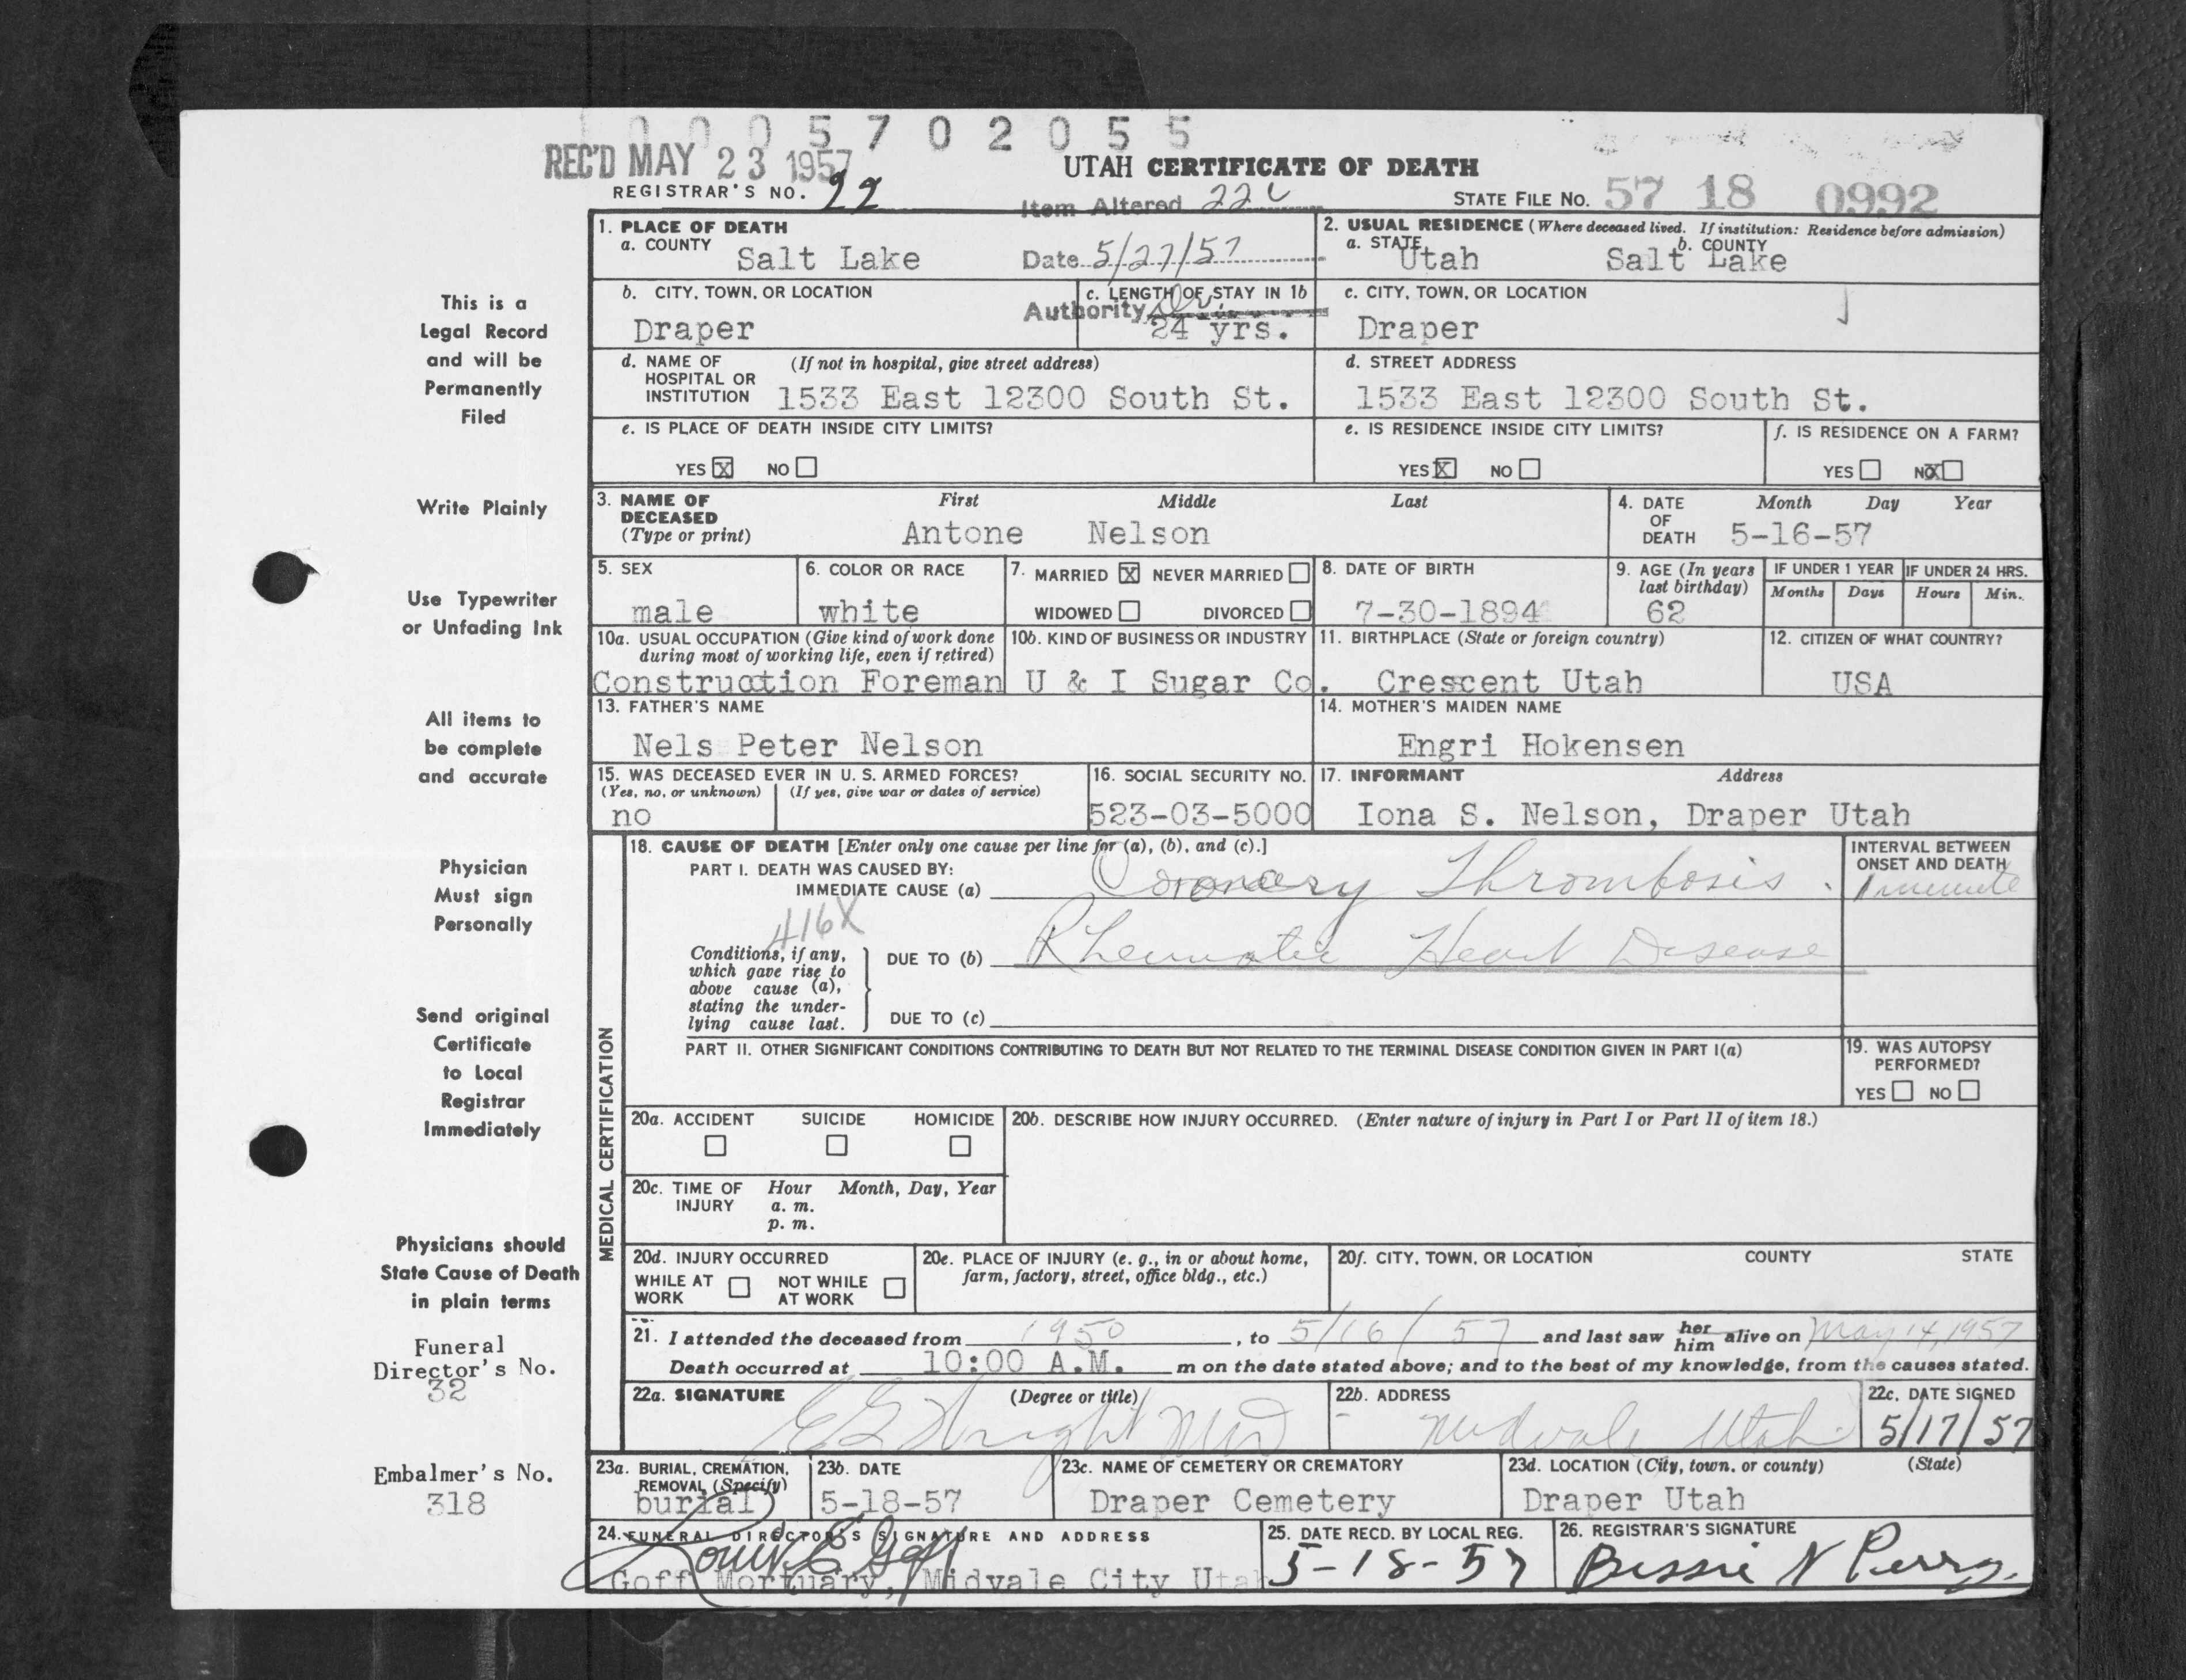 0 0 0 5 7 0 2 0 5 5
REC'D MAY 23 1957
UTAH CERTIFICATE OF DEATH
REGISTRAR'S NO. 22
Item Altered 22c
STATE FILE NO. 57 18 0992
1. PLACE OF DEATH
a. COUNTY Salt Lake
Date 5/27/57
2. USUAL RESIDENCE (Where deceased lived. If institution: Residence before admission)
a. STATE Utah
b. COUNTY Salt Lake
b. CITY, TOWN, OR LOCATION
Draper
c. LENGTH OF STAY IN 1b
Authority
24 yrs.
c. CITY, TOWN, OR LOCATION
Draper
d. NAME OF HOSPITAL OR INSTITUTION (If not in hospital, give street address)
1533 East 12300 South St.
d. STREET ADDRESS
1533 East 12300 South St.
e. IS PLACE OF DEATH INSIDE CITY LIMITS?
YES X NO
e. IS RESIDENCE INSIDE CITY LIMITS?
YES X NO
f. IS RESIDENCE ON A FARM?
YES NO X
3. NAME OF DECEASED (Type or print)
First Middle Last
Antone Nelson
4. DATE OF DEATH Month Day Year
5-16-57
5. SEX
male
6. COLOR OR RACE
white
7. MARRIED X NEVER MARRIED
WIDOWED DIVORCED
8. DATE OF BIRTH
7-30-1894
9. AGE (In years last birthday)
62
IF UNDER 1 YEAR
Months Days
IF UNDER 24 HRS.
Hours Min.
10a. USUAL OCCUPATION (Give kind of work done during most of working life, even if retired)
Construction Foreman
10b. KIND OF BUSINESS OR INDUSTRY
U & I Sugar Co.
11. BIRTHPLACE (State or foreign country)
Crescent Utah
12. CITIZEN OF WHAT COUNTRY?
USA
13. FATHER'S NAME
Nels Peter Nelson
14. MOTHER'S MAIDEN NAME
Engri Hokensen
15. WAS DECEASED EVER IN U. S. ARMED FORCES?
(Yes, no, or unknown) (If yes, give war or dates of service)
no
16. SOCIAL SECURITY NO.
523-03-5000
17. INFORMANT Address
Iona S. Nelson, Draper Utah
MEDICAL CERTIFICATION
18. CAUSE OF DEATH [Enter only one cause per line for (a), (b), and (c).]
PART I. DEATH WAS CAUSED BY:
IMMEDIATE CAUSE (a) Coronary Thrombosis.
INTERVAL BETWEEN ONSET AND DEATH
1 minute
416X
Conditions, if any, which gave rise to above cause (a), stating the underlying cause last.
DUE TO (b) Rheumatic Heart Disease
DUE TO (c)
PART II. OTHER SIGNIFICANT CONDITIONS CONTRIBUTING TO DEATH BUT NOT RELATED TO THE TERMINAL DISEASE CONDITION GIVEN IN PART I(a)
19. WAS AUTOPSY PERFORMED?
YES NO
20a. ACCIDENT SUICIDE HOMICIDE
20b. DESCRIBE HOW INJURY OCCURRED. (Enter nature of injury in Part I or Part II of item 18.)
20c. TIME OF INJURY Hour Month, Day, Year
a. m.
p. m.
20d. INJURY OCCURRED
WHILE AT WORK NOT WHILE AT WORK
20e. PLACE OF INJURY (e. g., in or about home, farm, factory, street, office bldg., etc.)
20f. CITY, TOWN, OR LOCATION COUNTY STATE
21. I attended the deceased from 1950, to 5/16/57 and last saw her him alive on May 14, 1957
Death occurred at 10:00 A.M. m on the date stated above; and to the best of my knowledge, from the causes stated.
22a. SIGNATURE (Degree or title)
E G Wright MD
22b. ADDRESS
Midvale Utah
22c. DATE SIGNED
5/17/57
23a. BURIAL, CREMATION, REMOVAL (Specify)
burial
23b. DATE
5-18-57
23c. NAME OF CEMETERY OR CREMATORY
Draper Cemetery
23d. LOCATION (City, town, or county) (State)
Draper Utah
24. FUNERAL DIRECTOR'S SIGNATURE AND ADDRESS
Goff Mortuary, Midvale City Utah
25. DATE RECD. BY LOCAL REG.
5-18-57
26. REGISTRAR'S SIGNATURE
Bessie N Perry.
This is a
Legal Record
and will be
Permanently
Filed
Write Plainly
Use Typewriter
or Unfading Ink
All items to
be complete
and accurate
Physician
Must sign
Personally
Send original
Certificate
to Local
Registrar
Immediately
Physicians should
State Cause of Death
in plain terms
Funeral
Director's No.
32
Embalmer's No.
318